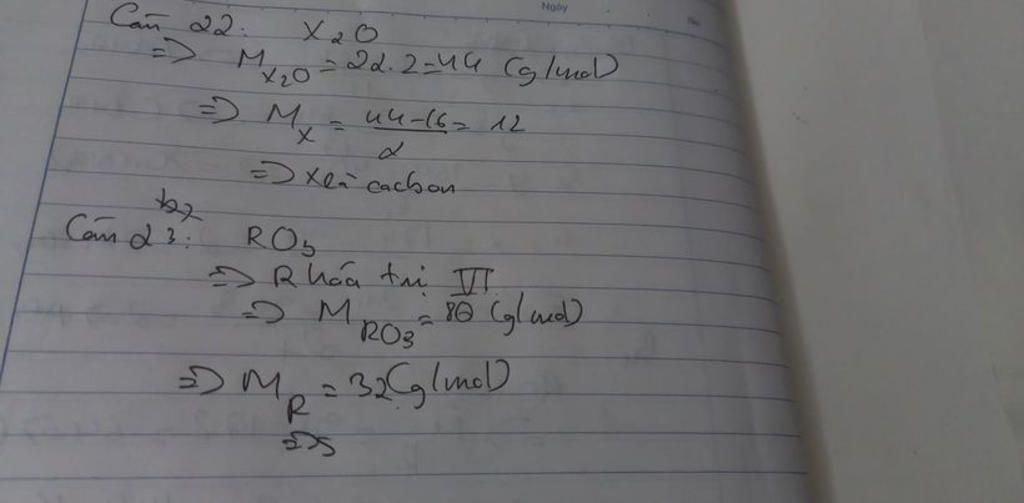 Ngày
No.
Câu 22: X₂O
=> M_X₂O = 22.2 = 44 (g/mol)
=> M_X = (44-16)/2 = 12
=> X là cacbon
Câu 23: RO₃
=> R hóa trị VI
=> M_RO₃ = 80 (g/mol)
=> M_R = 32 (g/mol)
=> S